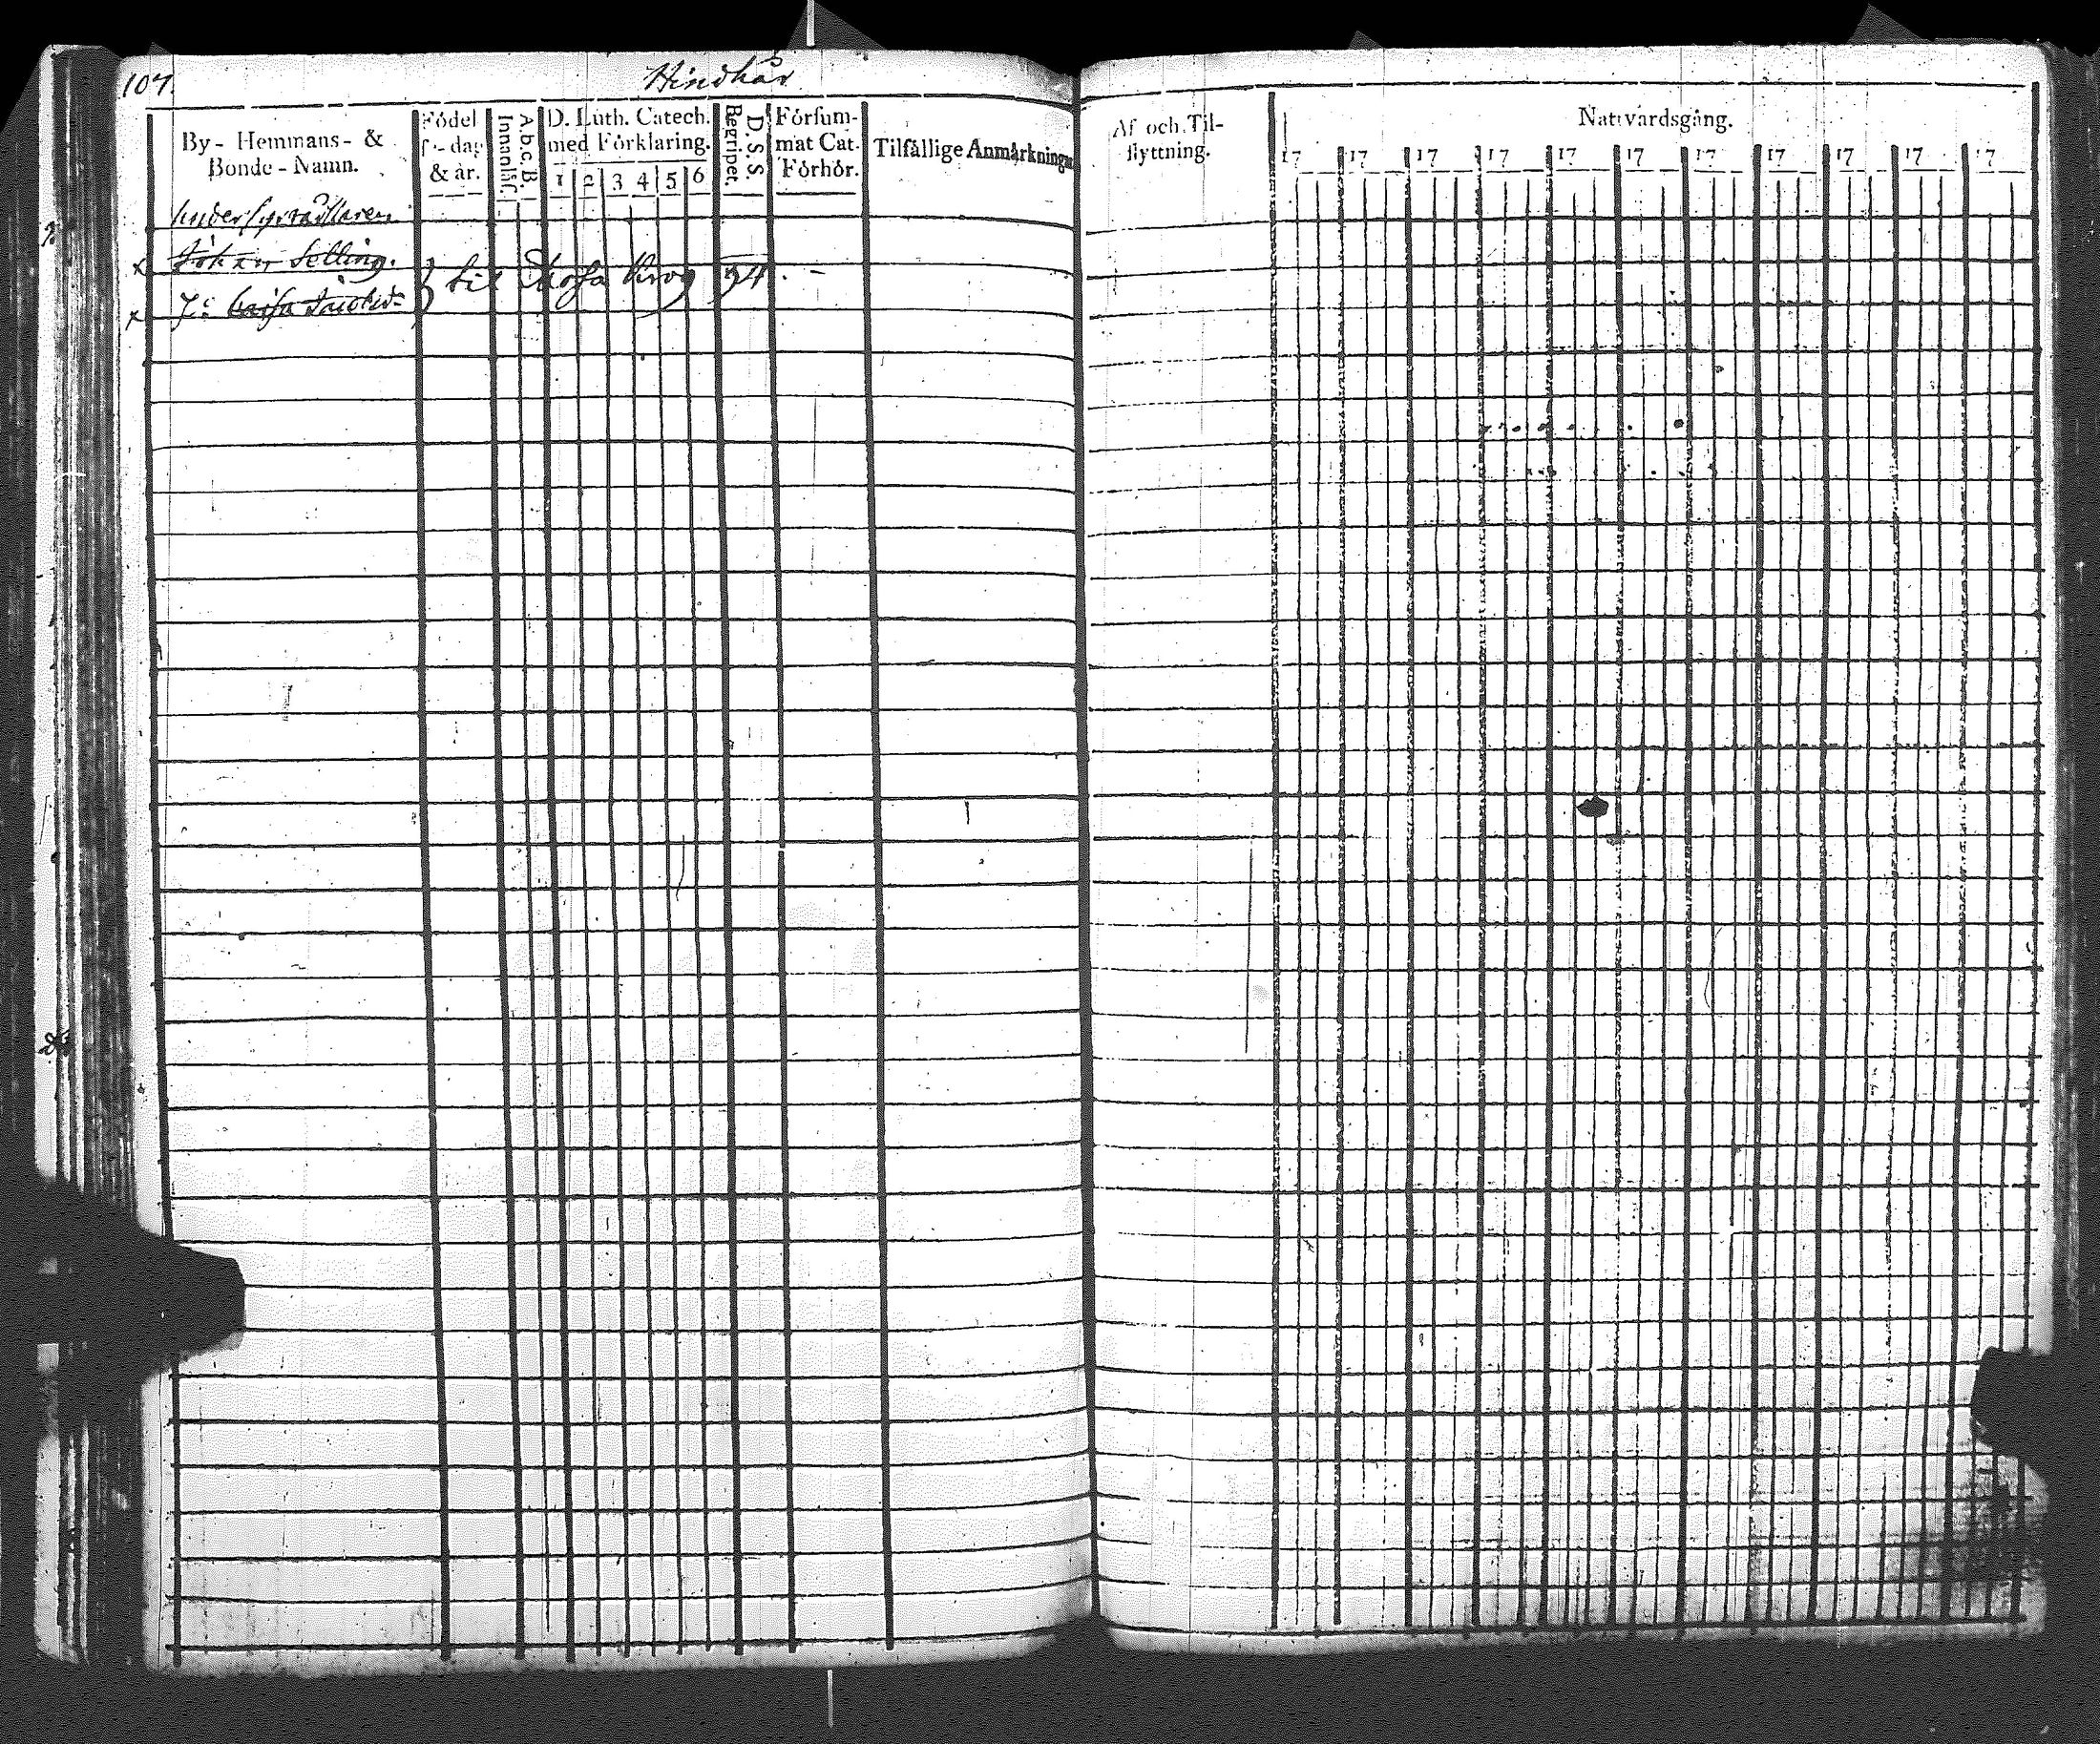 107.
Hindhår
By- Hemmans- &
Bonde-Namn.
Födel
s-dag
& år.
A.b.c. B.
Innanläs.
D. Luth. Catech.
med Förklaring.
1 2 3 4 5 6
D. S. S.
Begripet.
Försum-
mat Cat.
Förhör.
Tilfällige Anmärkningar
Af och Til-
flyttning.
Nattvardsgång.
17 17 17 17 17 17 17 17 17 17 17
Selling.
H: Caisa
til Krog 94.